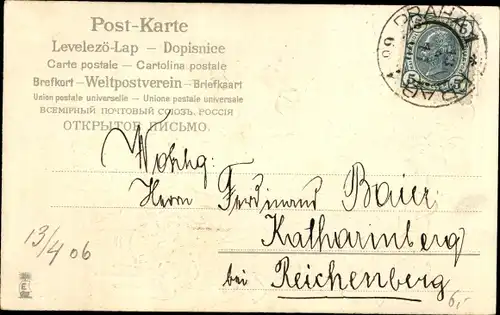 Post-Karte
Levelező-Lap — Dopisnice
Carte postale — Cartolina postale
Brefkort — Weltpostverein — Briefkaart
Union postale universelle — Unione postale universale
ВСЕМІРНЫЙ ПОЧТОВЫЙ СОЮЗЪ. РОССІЯ
ОТКРЫТОЕ ПИСЬМО.
PRAHA
5 5
Herrn Ferdinand Baier
Katharinberg
bei Reichenberg
13/4 06
E
6,-